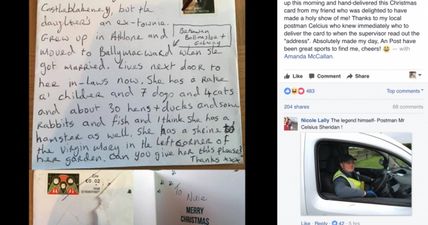 Castleblakeney but the
daughter's an ex-townie.
Grew up in Athlone and
moved to Ballymacward when she
Between
Ballinasloe +
Galway
got married. Lives next door to
her in-laws now. She has a rake
a' children and 7 dogs and 4 cats
and about 30 hens + ducks and some
rabbits and fish and I think she has a
hamster as well. She has a shrine to
the Virgin Mary in the left corner of
her garden. Can you give her this please!
Thanks xxx
€0.02
MERRY
CHRISTMAS
up this morning and hand-delivered this Christmas
card from my friend who was delighted to have
made a holy show of me! Thanks to my local
postman Celcius who knew immediately who to
deliver the card to when the supervisor read out the
"address". Absolutely made my day, An Post have
been great sports to find me, cheers! — with
Amanda McCallan.
Like Comment Share
483
Top comments
204 shares
68 comments
Nicole Lally The legend himself- Postman Mr
Celsius Sheridan !
Like · Reply · 42 · 5 hrs